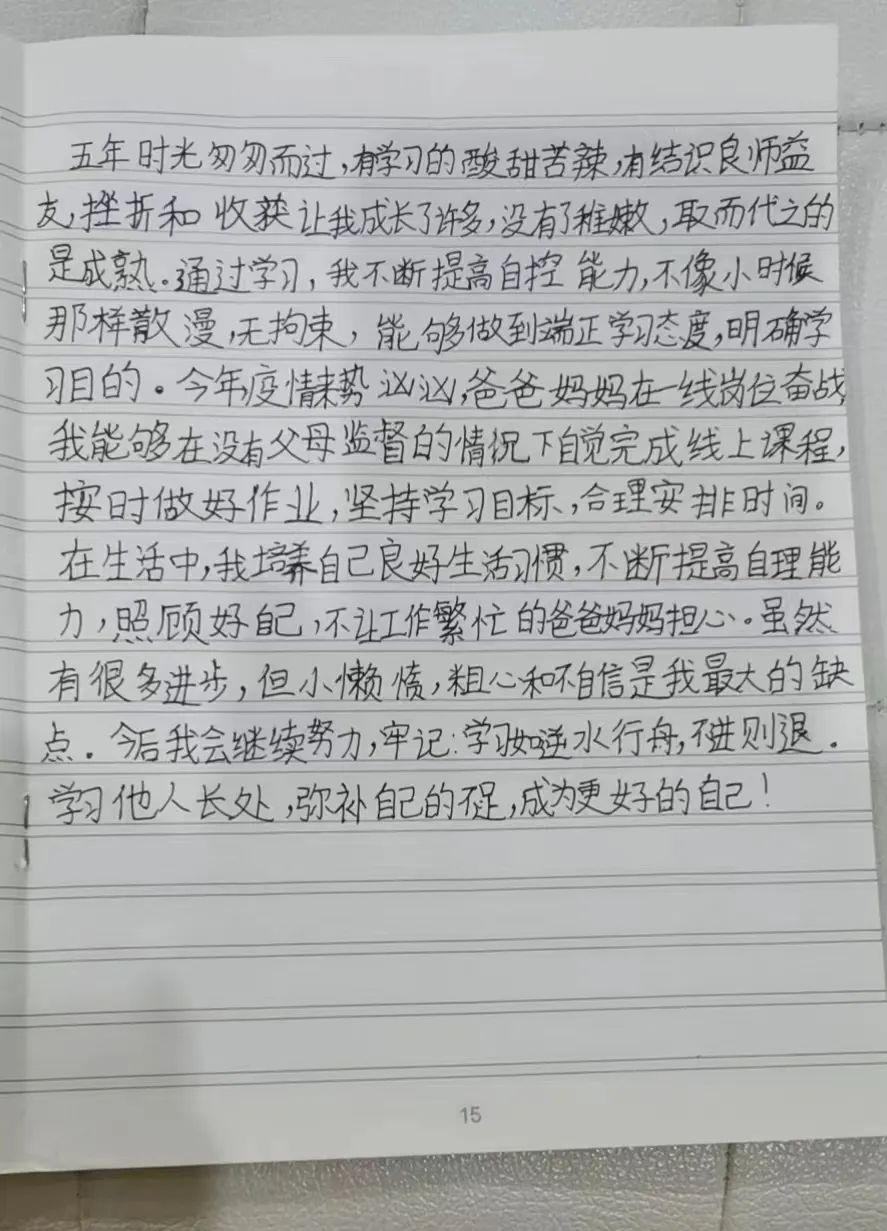 五年时光匆匆而过,有学习的酸甜苦辣,有结识良师益
友,挫折和收获让我成长了许多,没有了稚嫩,取而代之的
是成熟。通过学习,我不断提高自控能力,不像小时候
那样散漫,无拘束,能够做到端正学习态度,明确学
习目的。今年疫情来势汹汹,爸爸妈妈在一线岗位奋战,
我能够在没有父母监督的情况下自觉完成线上课程,
按时做好作业,坚持学习目标,合理安排时间。
在生活中,我培养自己良好生活习惯,不断提高自理能
力,照顾好自己,不让工作繁忙的爸爸妈妈担心。虽然
有很多进步,但小懒惰,粗心和不自信是我最大的缺
点。今后我会继续努力,牢记:学习如逆水行舟,不进则退.
学习他人长处,弥补自己的不足,成为更好的自己!
15